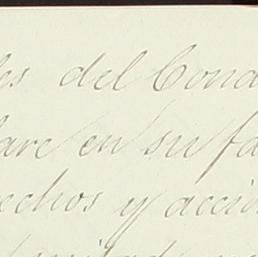 es del Cond
lare en su fa
echos y accio